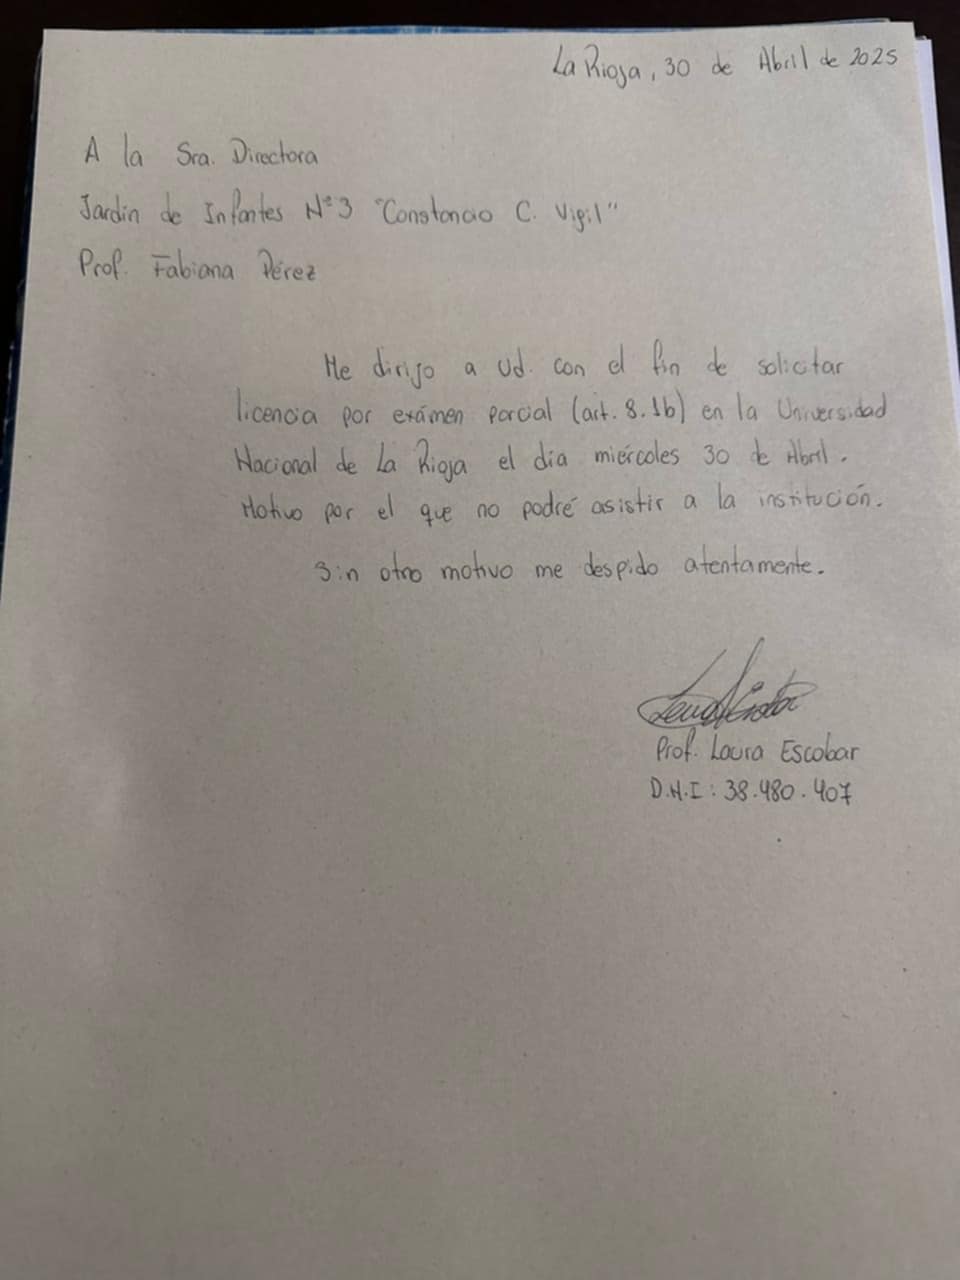 La Rioja, 30 de Abril de 2025
A la Sra. Directora
Jardín de Infantes N°3 "Constancio C. Vigil"
Prof. Fabiana Pérez
Me dirijo a Ud. con el fin de solicitar
licencia por exámen parcial (art. 8.1b) en la Universidad
Nacional de La Rioja el día miércoles 30 de Abril.
Motivo por el que no podré asistir a la institución.
Sin otro motivo me despido atentamente.
Prof. Laura Escobar
D.N.I: 38.480.407